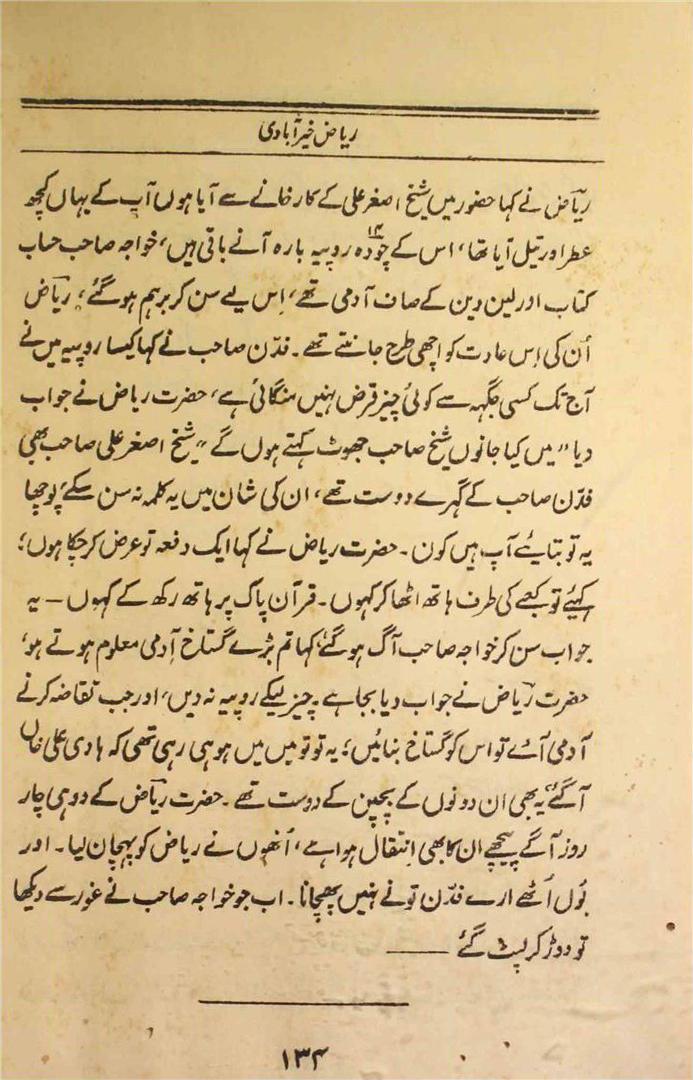 ریاض خیرآبادی
ریاضؔ نے کہا حضور میں شیخ اصغر علی کے کارخانے سے آیا ہوں آپ کے یہاں کچھ
عطر اور تیل آیا تھا، اس کے چودہ ۱۴ روپیہ بارہ آنے باقی ہیں، خواجہ صاحب حساب
کتاب اور لین دین کے صاف آدمی تھے، اِس لیے سن کر برہم ہو گئے، ریاضؔ
اُن کی اِس عادت کو اچھی طرح جانتے تھے۔ فدّن صاحب نے کہا کیسا روپیہ میں نے
آج تک کسی جگہہ سے کوئی چیز قرض نہیں منگائی ہے، حضرت ریاض نے جواب
دیا "میں کیا جانوں شیخ صاحب جھوٹ کہتے ہوں گے" شیخ اصغر علی صاحب بھی
فدّن صاحب کے گہرے دوست تھے، ان کی شان میں یہ کلمہ نہ سن سکے، پوچھا
یہ تو بتایئے آپ ہیں کون۔ حضرت ریاض نے کہا ایک دفعہ تو عرض کر چکا ہوں؛
کہیئے تو کعبے کی طرف ہاتھ اٹھا کر کہوں۔ قرآن پاک پر ہاتھ رکھ کے کہوں — یہ
جواب سن کر خواجہ صاحب آگ ہو گئے، کہا تم بڑے گستاخ آدمی معلوم ہوتے ہو،
حضرت ریاضؔ نے جواب دیا بجا ہے۔ چیز لیکے روپیہ نہ دیں، اور جب تقاضہ کرنے
آدمی آئے تو اس کو گستاخ بنائیں؛ یہ تو تو میں میں ہو ہی رہی تھی کہ ہادی علی خاں
آ گئے، یہ بھی ان دونوں کے بچپن کے دوست تھے۔ حضرت ریاضؔ کے دو ہی چار
روز آگے پیچھے ان کا بھی اِنتقال ہوا ہے، اُنھوں نے ریاض کو پہچان لیا۔ اور
بُول اُٹھے ارے فدّن تو نے نہیں پہچانا۔ اب جو خواجہ صاحب نے غور سے دیکھا
تو دوڑ کر لپٹ گئے ——
۱۳۴